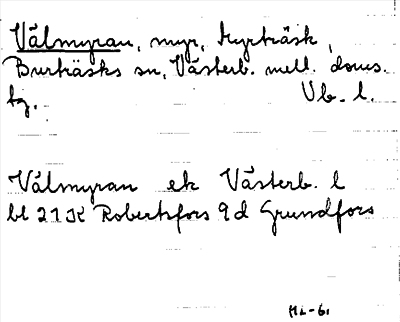 Välmyran, myr, Myrträsk,
Burträsks sn, Västerb. mell. doms.
tg. Vb. l.
Välmyran ek Västerb. l
bl 21K Robertsfors 9d Grundfors
HL-61